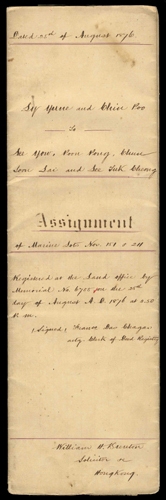 Dated 25th of August 1876
Sy Yune and Chin Poo
to
See You, Pom Pong, Chun
Som Lai and See Tuk Cheong
Assignment
of Marine Lots Nos. 181 & 211
Registered at the Land Office by
Memorial No. 6755 on the 25th
day of August A.D. 1876 at 2.30
P.M.
(Signed) France Das Chagas
actg. Clerk of Deed Registry
William H. Brereton
Solicitor &c
Hongkong